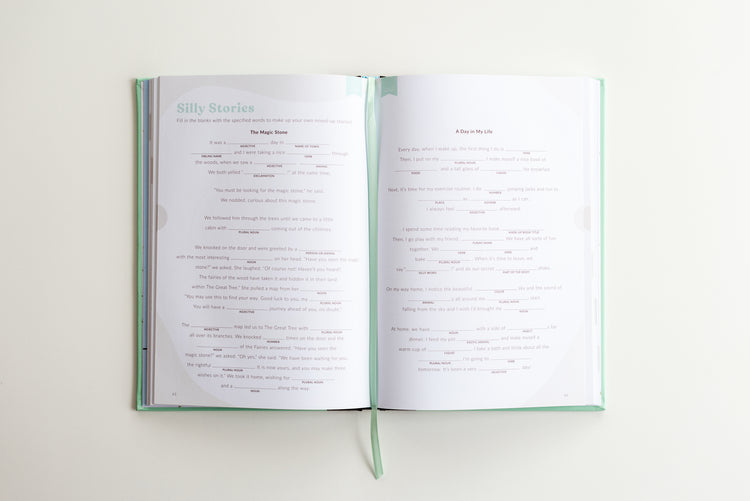 Silly Stories
Fill in the blanks with the specified words to make up your own mixed-up stories!
The Magic Stone
It was a ________ day in ________
ADJECTIVE NAME OF TOWN
________ and I were taking a nice ________ through
SIBLING NAME VERB
the woods, when we saw a ________ ________
ADJECTIVE ANIMAL
We both yelled "________!" at the same time.
EXCLAMATION
"You must be looking for the magic stone," he said.
We nodded, curious about this magic stone.
We followed him through the trees until we came to a little
cabin with ________ coming out of the chimney.
PLURAL NOUN
We knocked on the door and were greeted by a ________
with the most interesting ________ on her head. "Have you seen the magic
NOUN
stone?" we asked. She laughed. "Of course not! Haven't you heard?
The fairies of the wood have taken it and hidden it in their land
within The Great Tree." She pulled a map from her ________
NOUN
"You may use this to find your way. Good luck to you, my ________
PLURAL NOUN
You will have a ________ journey ahead of you, no doubt."
ADJECTIVE
The ________ map led us to The Great Tree with ________
ADJECTIVE PLURAL NOUN
all over its branches. We knocked ________ times on the door and the
NUMBER
________ of the Fairies answered. "Have you seen the
NOUN
magic stone?" we asked. "Oh yes," she said. "We have been waiting for you,
the rightful ________. It is now yours, and you may make three
PLURAL NOUN
wishes on it." We took it home, wishing for ________
PLURAL NOUN
and a ________ along the way.
NOUN
A Day in My Life
Every day, when I wake up, the first thing I do is ________
VERB
Then, I put on my ________. I make myself a nice bowl of
PLURAL NOUN
________ and a tall glass of ________ for breakfast.
FOOD LIQUID
Next, it's time for my exercise routine. I do ________ jumping jacks and run to
NUMBER
________ as ________ as I can.
PLACE ADVERB
I always feel ________ afterward.
ADJECTIVE
I spend some time reading my favorite book, ________
NAME OF BOOK TITLE
Then, I go play with my friend ________. We have all sorts of fun
FUNNY NAME
together. We ________ and
VERB VERB
bake ________. When it's time to leave, we
PLURAL NOUN
say "________!" and do our secret ________ shake.
SILLY WORD PART OF THE BODY
On my way home, I notice the beautiful ________ sky and the sound of
COLOR
________s all around me. ________ start
ANIMAL PLURAL NOUN
falling from the sky and I wish I'd brought my ________
NOUN
At home, we have ________ with a side of ________s for
NOUN INSECT
dinner. I feed my pet ________ and make myself a
warm cup of ________. I take a bath and think about all the
LIQUID
________ I'm going to ________
PLURAL NOUN VERB
tomorrow. It's been a very ________ day.
ADJECTIVE